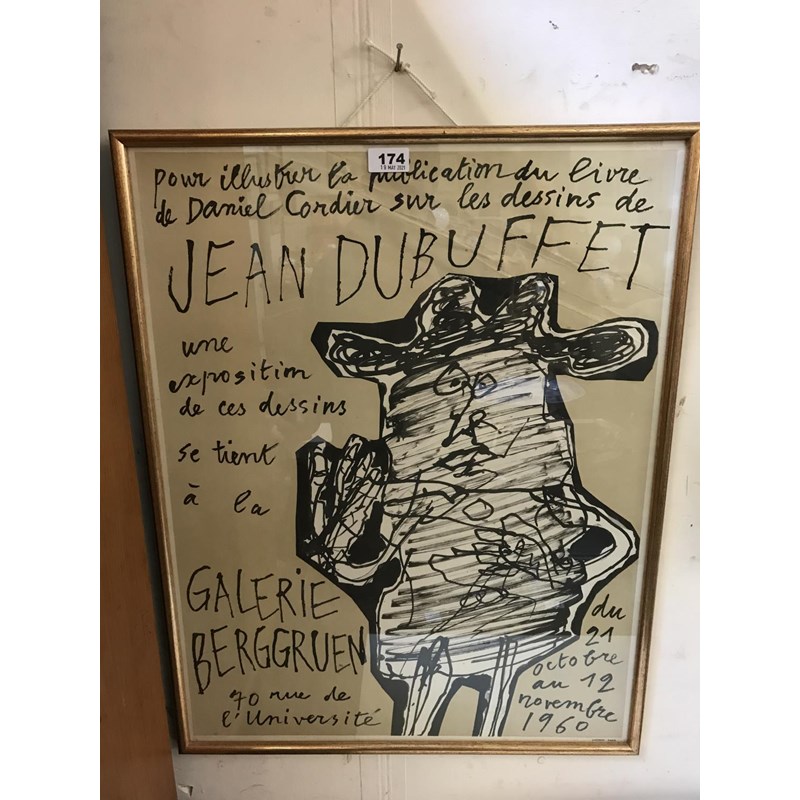 174
18 MAY 2021
pour illustrer la publication du livre
de Daniel Cordier sur les dessins de
JEAN DUBUFFET
une
exposition
de ces dessins
se tient
à la
GALERIE
BERGGRUEN
70 rue de
l'Université
du
21
octobre
au 12
novembre
1960